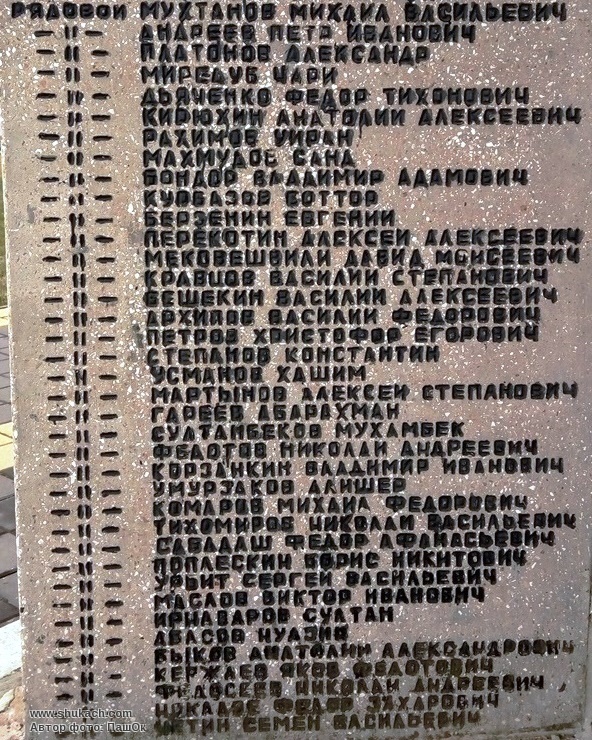 РЯДОВОЙ МУХТАНОВ МИХАИЛ ВАСИЛЬЕВИЧ
— II — АНДРЕЕВ ПЕТР ИВАНОВИЧ
— II — ПЛАТОНОВ АЛЕКСАНДР
— II — МИРЕДУБ ЧАРИ
— II — ДЬЯЧЕНКО ФЕДОР ТИХОНОВИЧ
— II — КИРЮХИН АНАТОЛИЙ АЛЕКСЕЕВИЧ
— II — РАХИМОВ УИРАН
— II — МАХМУДОВ САНД
— II — БОНДОР ВЛАДИМИР АДАМОВИЧ
— II — КУРБАЗОВ БОТТОР
— II — БЕРЗЕНИН ЕВГЕНИЙ
— II — ПЕРЕКОТИН АЛЕКСЕЙ АЛЕКСЕЕВИЧ
— II — МЕКОВЕШВИЛИ ДАВИД МОИСЕЕВИЧ
— II — КРАВЦОВ ВАСИЛИЙ СТЕПАНОВИЧ
— II — ВЕШЕКИН ВАСИЛИЙ АЛЕКСЕЕВИЧ
— II — АРХИПОВ ВАСИЛИЙ ФЕДОРОВИЧ
— II — ПЕТРОВ ХРИСТОФОР ЕГОРОВИЧ
— II — СТЕПАНОВ КОНСТАНТИН
— II — УСМАНОВ ХАШИМ
— II — МАРТЫНОВ АЛЕКСЕЙ СТЕПАНОВИЧ
— II — ГАРЕЕВ АБАРАХМАН
— II — СУЛТАНБЕКОВ МУХАМБЕК
— II — ФЕДОТОВ НИКОЛАЙ АНДРЕЕВИЧ
— II — КОРЗАНКИН ВЛАДИМИР ИВАНОВИЧ
— II — УМУРЗАКОВ АЛИШЕР
— II — КОМАРОВ МИХАИЛ ФЕДОРОВИЧ
— II — ТИХОМИРОВ НИКОЛАЙ ВАСИЛЬЕВИЧ
— II — САБАДАШ ФЕДОР АФАНАСЬЕВИЧ
— II — ПОПЛЕСКИН БОРИС НИКИТОВИЧ
— II — УРБИТ СЕРГЕЙ ВАСИЛЬЕВИЧ
— II — МАСЛОВ ВИКТОР ИВАНОВИЧ
— II — ИРНАВАРОВ СУЛТАН
— II — АБАСОВ
— II — БЫКОВ АНАТОЛИЙ АЛЕКСАНДРОВИЧ
— II — КЕРЖАЕВ ЯКОВ ФЕДОТОВИЧ
— II — ФЕДОСЕЕВ НИКОЛАЙ АНДРЕЕВИЧ
— II — ФЕДОР ЗАХАРОВИЧ
СЕМЕН ВАСИЛЬЕВИЧ
www.shukach.com
Автор фото: ПашОк